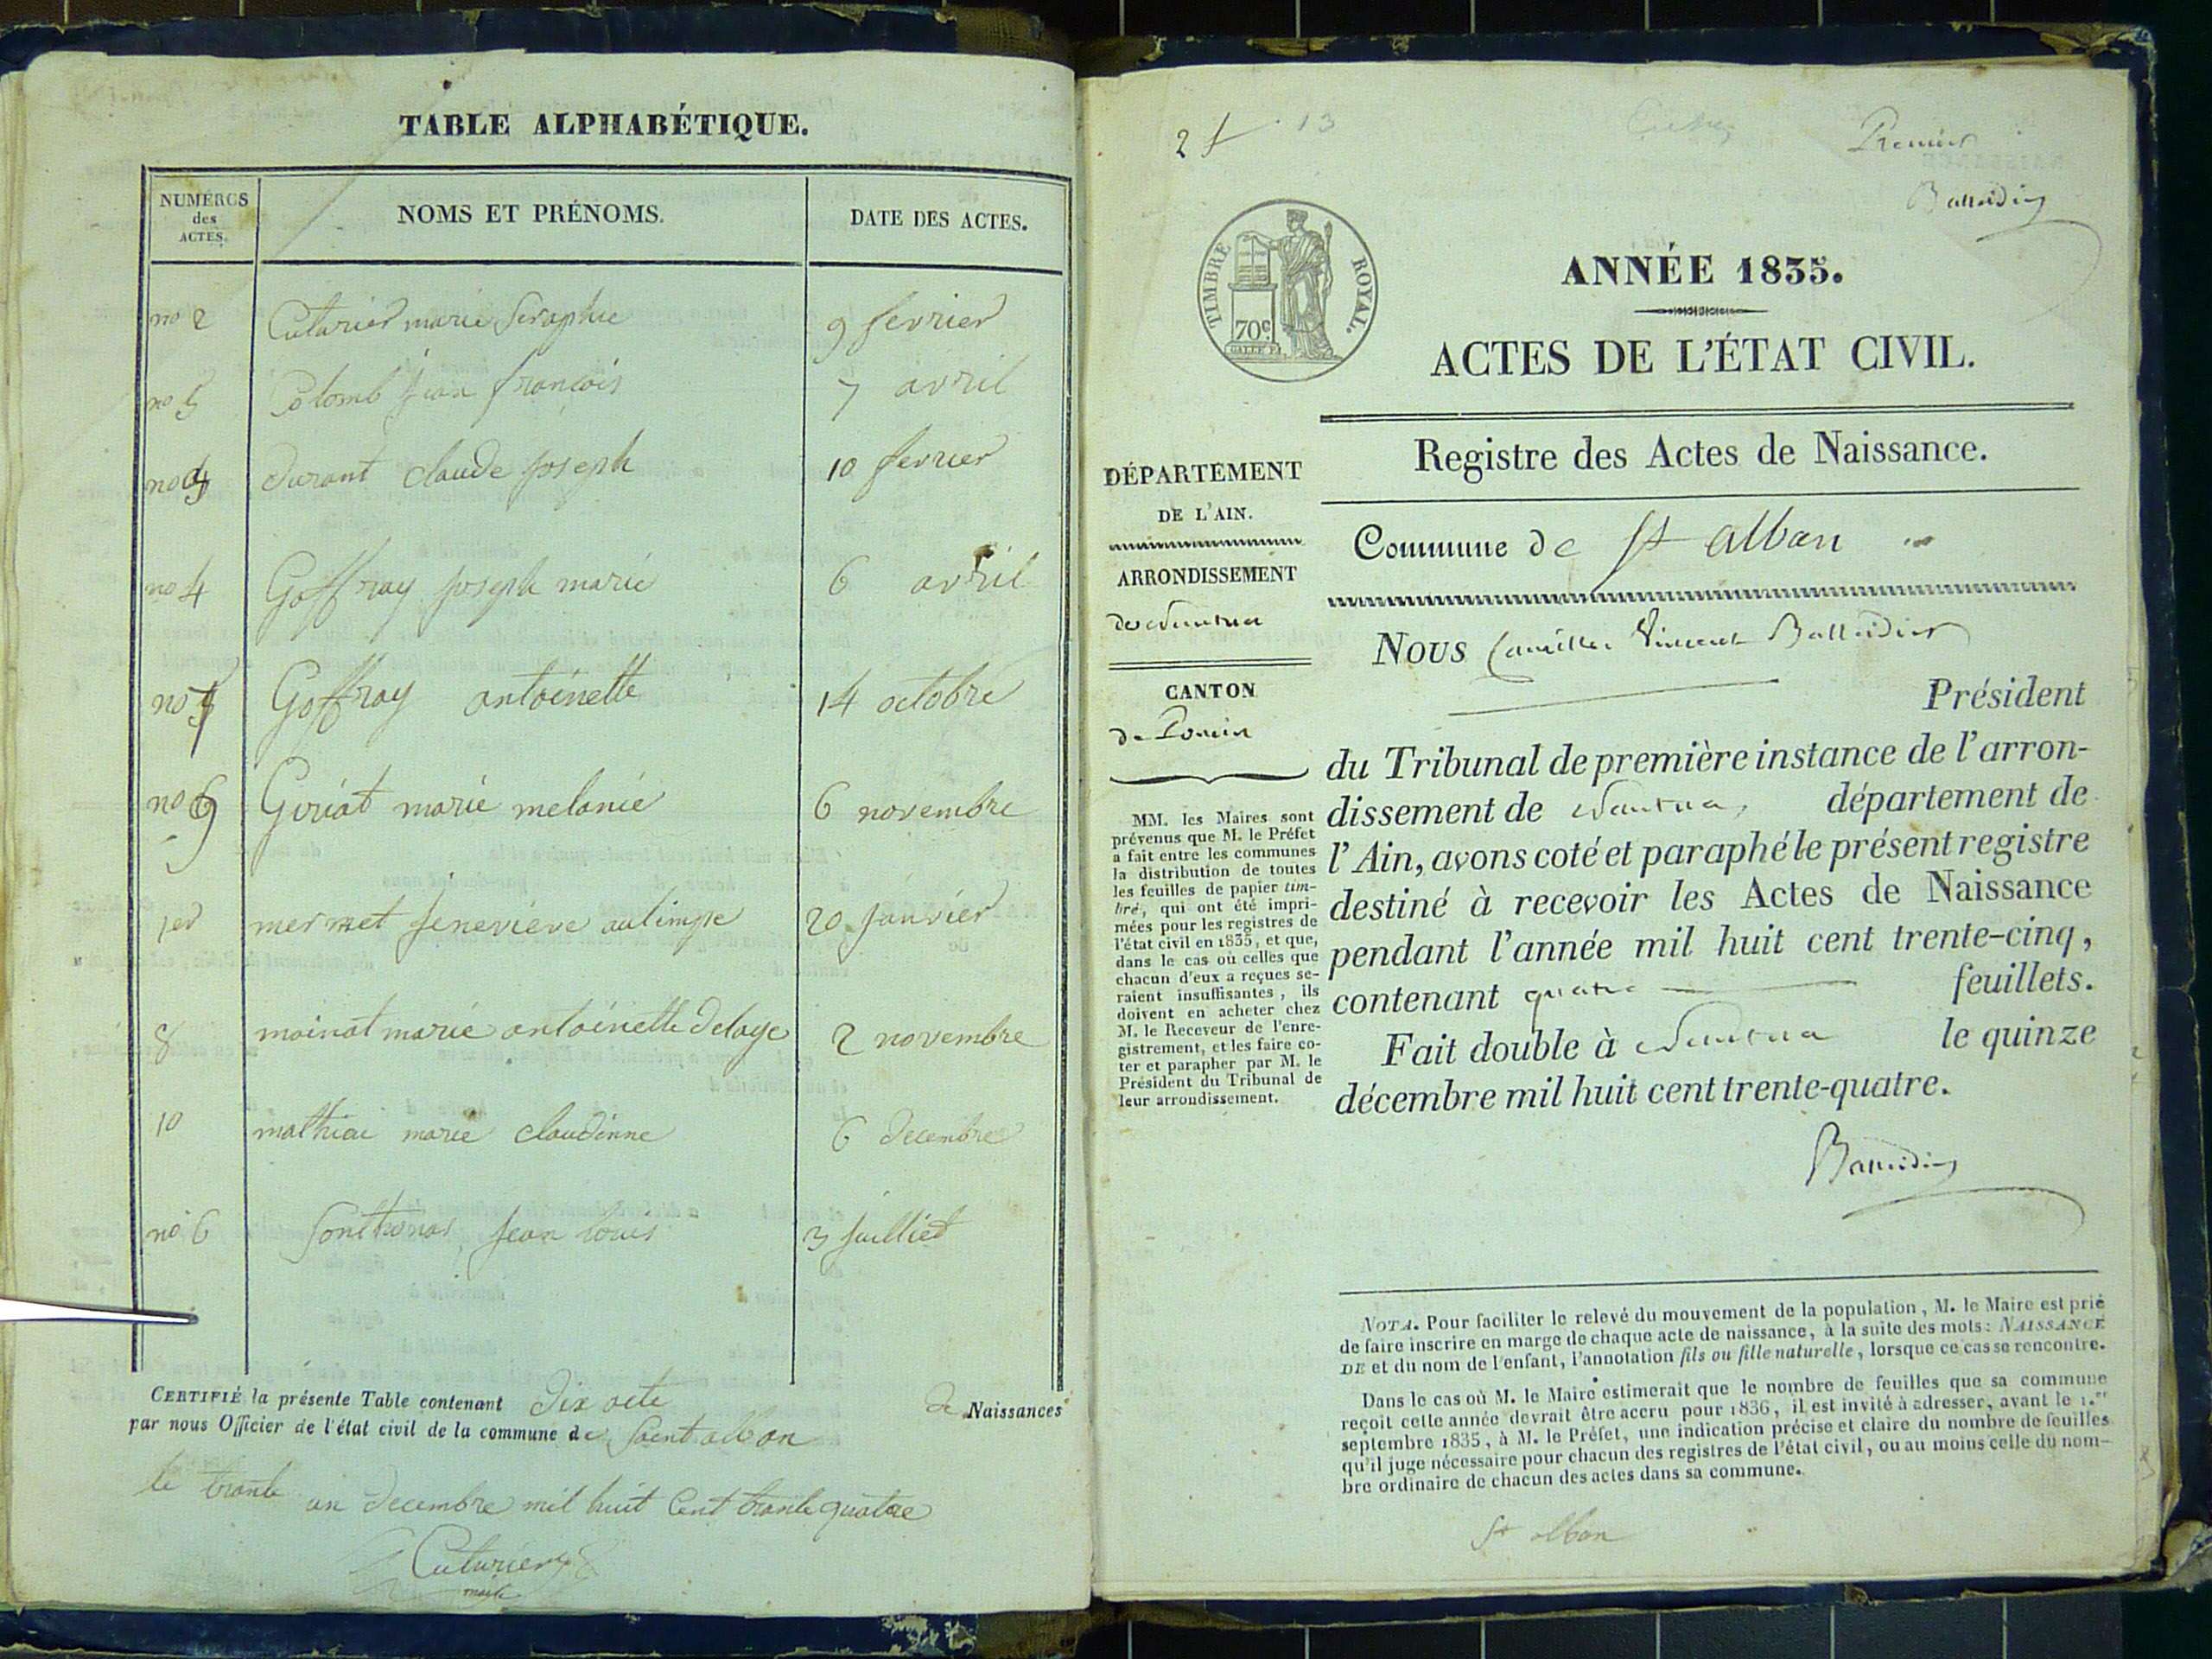 TABLE ALPHABÉTIQUE.
NUMÉROS des ACTES. NOMS ET PRÉNOMS. DATE DES ACTES.
no 2 Cuturier marie Seraphie 9 fevrier
no 5 Colomb jean francois 7 avril
no durant claude joseph 10 fevrier
no 4 Goffray joseph marie 6 avril
no 7 Goffray antoinette 14 octobre
no 9 Guriat marie melanie 6 novembre
1er mermet jenevieve aulimpe 20 janvier
8 moinat marie antoinette delage 2 novembre
10 mathiai marie claudinne 6 decembre
no 6 Sonthonas jean louis 3 juillied
CERTIFIÉ la présente Table contenant dix acte de Naissances
par nous Officier de l'état civil de la commune de Saint alban
le trante un decembre mil huit Cent trante quatre
Cuturier
maire
2 f 13
Premier
Balleidier
TIMBRE ROYAL.
70c.
ANNÉE 1835.
ACTES DE L'ÉTAT CIVIL.
Registre des Actes de Naissance.
DÉPARTEMENT
DE L'AIN.
ARRONDISSEMENT
de Nantua
CANTON
de Poncin
MM. les Maires sont
prévenus que M. le Préfet
a fait entre les communes
la distribution de toutes
les feuilles de papier tim-
bré, qui ont été impri-
mées pour les registres de
l'état civil en 1835, et que,
dans le cas où celles que
chacun d'eux a reçues se-
raient insuffisantes, ils
doivent en acheter chez
M. le Receveur de l'enre-
gistrement, et les faire co-
ter et parapher par M. le
Président du Tribunal de
leur arrondissement.
Commune de St alban
Nous Camille Vincent Balleidier
Président
du Tribunal de première instance de l'arron-
dissement de Nantua, département de
l'Ain, avons coté et paraphé le présent registre
destiné à recevoir les Actes de Naissance
pendant l'année mil huit cent trente-cinq,
contenant quatre feuillets.
Fait double à Nantua le quinze
décembre mil huit cent trente-quatre.
Balleidier
NOTA. Pour faciliter le relevé du mouvement de la population, M. le Maire est prié
de faire inscrire en marge de chaque acte de naissance, à la suite des mots: NAISSANCE
DE et du nom de l'enfant, l'annotation fils ou fille naturelle, lorsque ce cas se rencontre.
Dans le cas où M. le Maire estimerait que le nombre de feuilles que sa commune
reçoit cette année devrait être accru pour 1836, il est invité à adresser, avant le 1.er
septembre 1835, à M. le Préfet, une indication précise et claire du nombre de feuilles
qu'il juge nécessaire pour chacun des registres de l'état civil, ou au moins celle du nom-
bre ordinaire de chacun des actes dans sa commune.
St alban